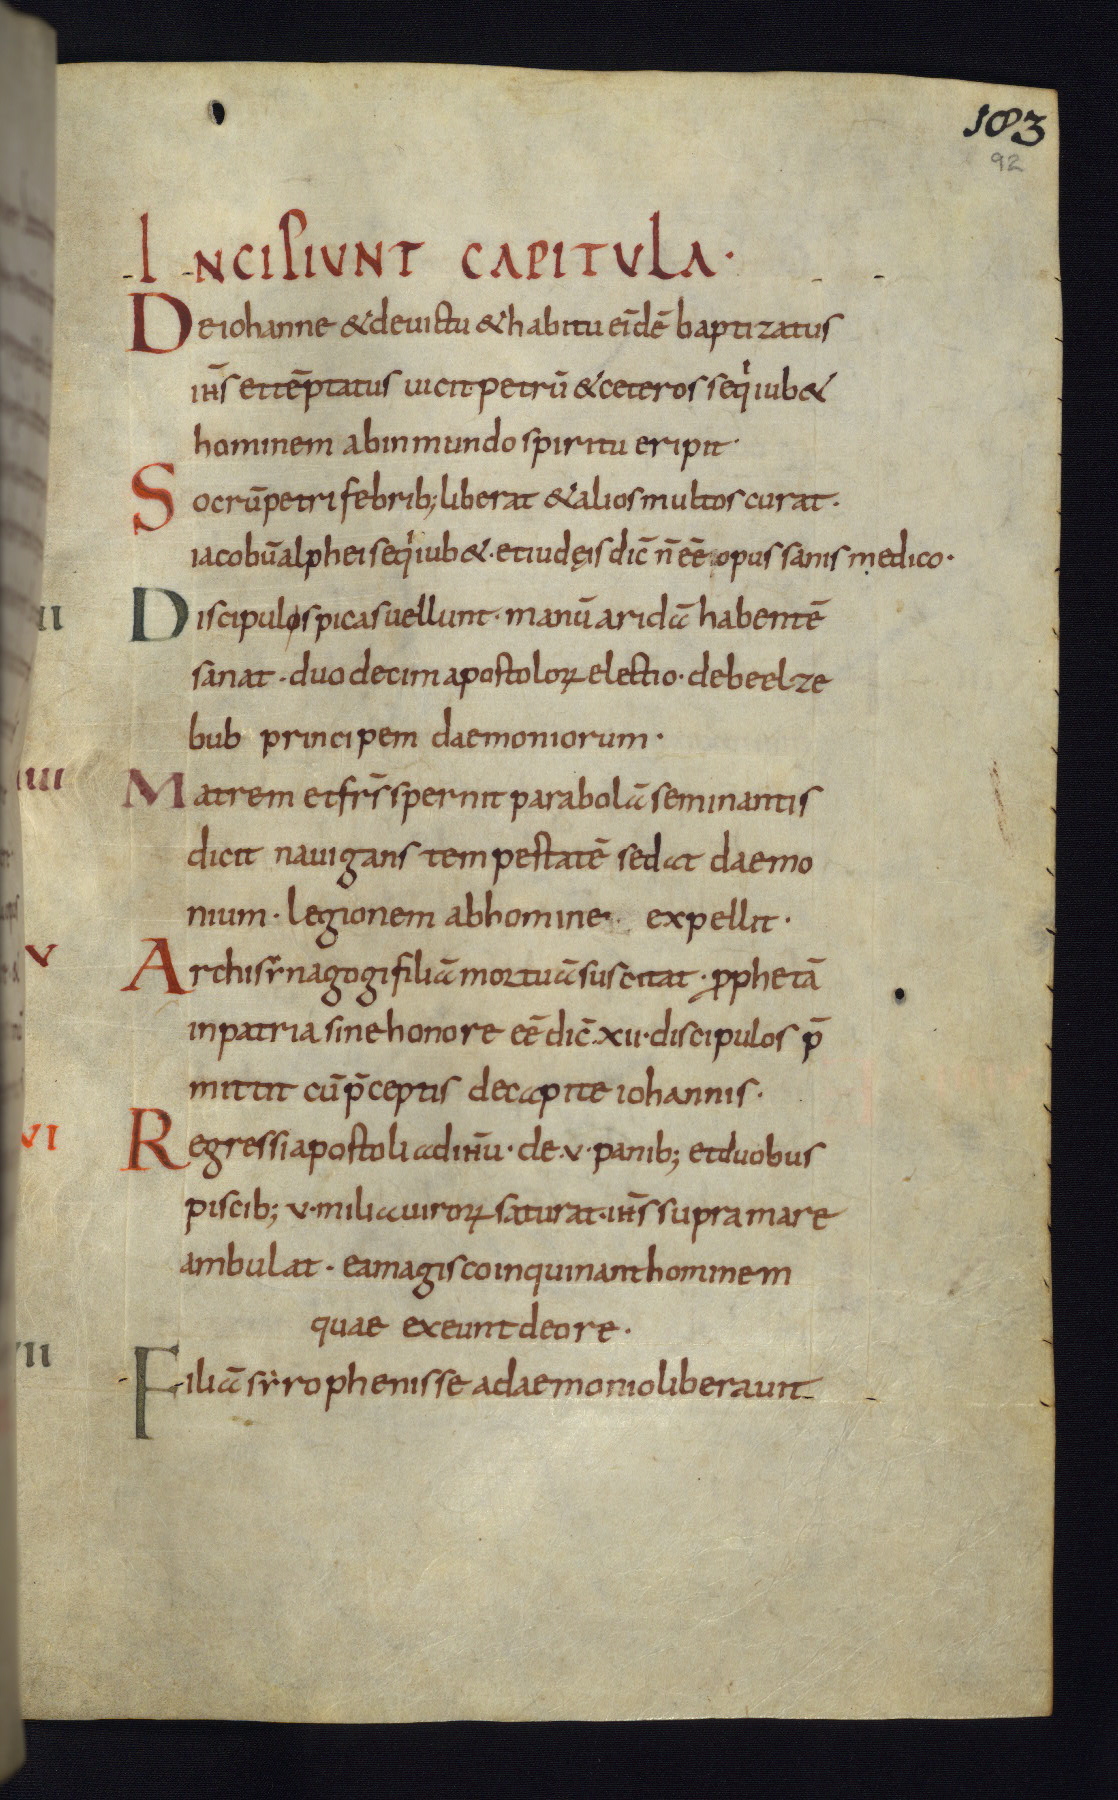 183
92
INCIPIUNT CAPITULA·
De iohanne & de uictu & habitu eīdē baptizatus
ih̄s et tēptatus uicit petrū & ceteros seq̍ iub&
hominem ab inmundo spiritu eripit·
Socrū petri febrib; liberat & alios multos curat·
iacobū alphei seq̍ iub&· et iudęis dic̄ n̄ eē opus sanis medico·
II Discipulos spicas uellunt· manū aridā habentē
sanat· duodecim apostoloꝝ electio· de beelze
bub principem daemoniorum·
IIII Matrem et fr̄s spernit parabolā seminantis
dicit nauigans tempestatē sedat daemo
nium· legionem ab homine· expellit·
V Archisẏnagogi filiā mortuā suscitat· ꝓphetā
in patria sine honore eē dic̄·xii·discipulos p̄
mittit cū p̄ceptis de capite iohannis·
VI Regressi apostoli ad ih̄u· de·v·panib; et duobus
piscib; v·milia uiroꝝ saturat·ih̄s supra mare
ambulat· ea magis coinquinant hominem
quae exeunt de ore·
VII Filiā sẏrophenisse a daemonio liberauit